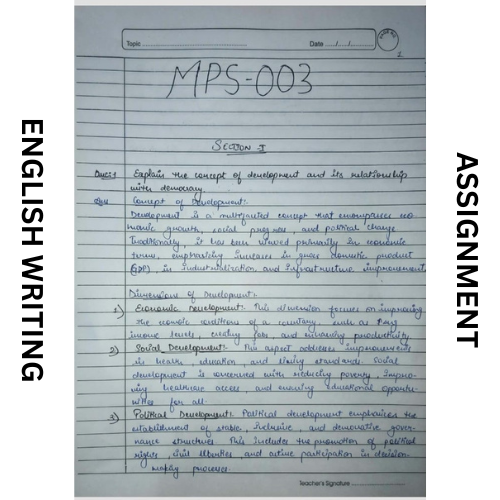 Topic
Date ..../..../....
2
MPS-003
SECTION I
Ques:1 Explain the concept of development and its relationship
with democracy.
Ans Concept of Development:
Development is a multifaceted concept that encompasses eco
nomic growth, social progress, and political change
Traditionally, it has been viewed primarily in economic
terms, emphasizing increases in gross domestic product
(GDP), in industrialization and infrastructure improvement.
Dimensions of Development:-
1) Economic Development: This dimension focuses on improving
the economic conditions of a country, such as
income levels, creating jobs, and enhancing productivity
2) Social Development: This aspect addresses improvements
in health, education, and living standards. Social
development is concerned with reducing poverty, Impro-
ving healthcare access, and ensuring educational opportu-
nities for all.
3) Political Development:- Political development emphasizes the
establishment of stable, inclusive, and democratic gover-
nance structures This includes the promotion of political
rights, civil liberties and active participation in decision-
making processes.
Teacher's Signature
ENGLISH WRITING
ASSIGNMENT